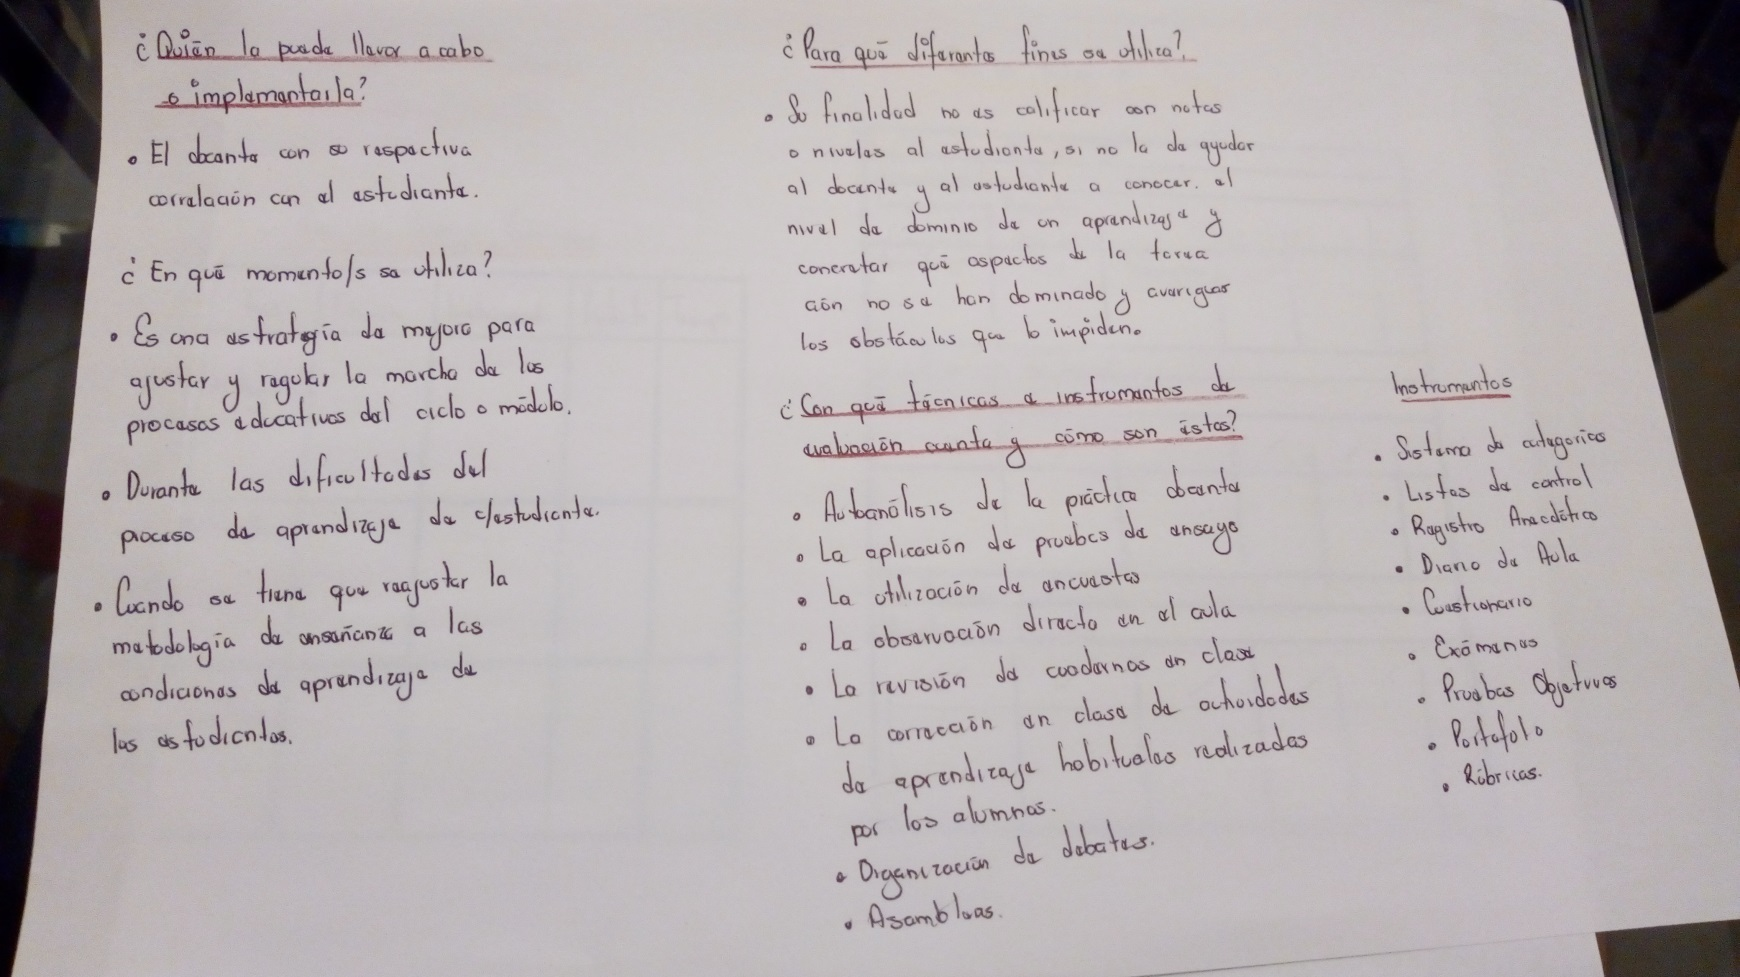 ¿Quién la puede llevar a cabo
o implementarla?
• El docente con su respectiva
correlación con el estudiante.
¿En qué momento/s se utiliza?
• Es una estrategia de mejora para
ajustar y regular la marcha de los
procesos educativos del ciclo o módulo.
• Durante las dificultades del
proceso de aprendizaje de c/estudiante.
• Cuando se tiene que reajustar la
metodología de enseñanza a las
condiciones de aprendizaje de
los estudiantes.
¿Para qué diferentes fines se utiliza?
• Su finalidad no es calificar con notas
o niveles al estudiante, si no la de ayudar
al docente y al estudiante a conocer. el
nivel de dominio de un aprendizaje y
concretar qué aspectos de la tarea
aún no se han dominado y averiguar
los obstáculos que lo impiden.
¿Con qué técnicas e instrumentos de
evaluación cuenta y cómo son éstos?
• Autoanálisis de la práctica docente
• La aplicación de pruebas de ensayo
• La utilización de encuestas
• La observación directa en el aula
• La revisión de cuadernos en clase
• La corrección en clase de actividades
de aprendizaje habituales realizadas
por los alumnos.
• Organización de debates.
• Asambleas.
Instrumentos
• Sistema de categorías
• Listas de control
• Registro Anecdótico
• Diario de Aula
• Cuestionario
• Exámenes
• Pruebas Objetivas
• Portafolo
• Rúbricas.